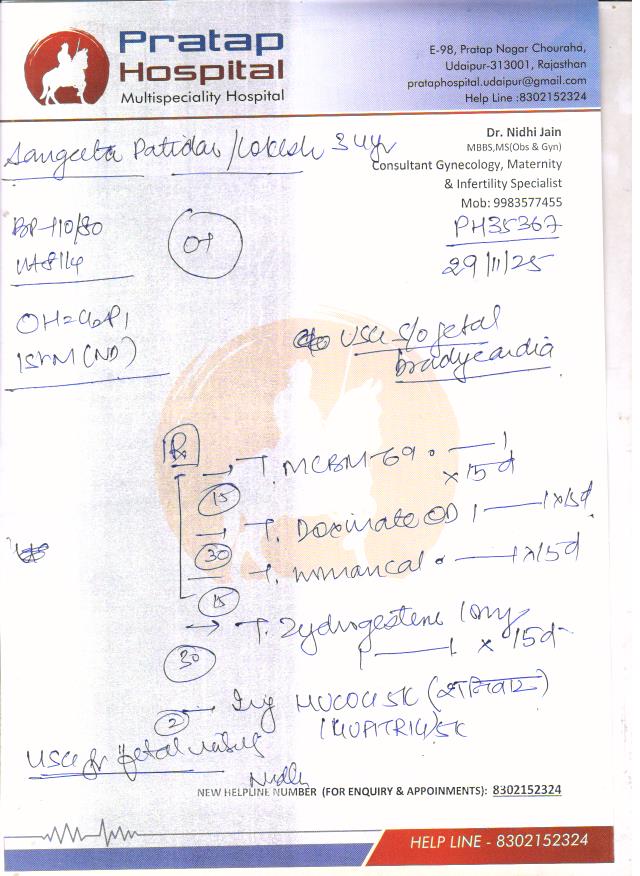 Pratap
Hospital
Multispeciality Hospital
E-98, Pratap Nagar Chouraha,
Udaipur-313001, Rajasthan
prataphospital.udaipur@gmail.com
Help Line :8302152324
Dr. Nidhi Jain
MBBS,MS(Obs & Gyn)
Consultant Gynecology, Maternity
& Infertility Specialist
Mob: 9983577455
Sangeeta Patidar / Lokesh 34yr
PH35367
29/11/25
BP-110/80
O+
OH=G2P1
c/o USG s/o fetal
bradycardia
Rx
T. MCBM-69 1
x 15d
15
T. Doxinate OD 1 1x15d
30
T. 1x15d
15
T. Zydrogestene 10mg
1 1 x 15d
30
Inj HUCOG 5K (शनिवार)
2
5K
USG for fetal
Nidhi
NEW HELPLINE NUMBER (FOR ENQUIRY & APPOINMENTS): 8302152324
HELP LINE - 8302152324